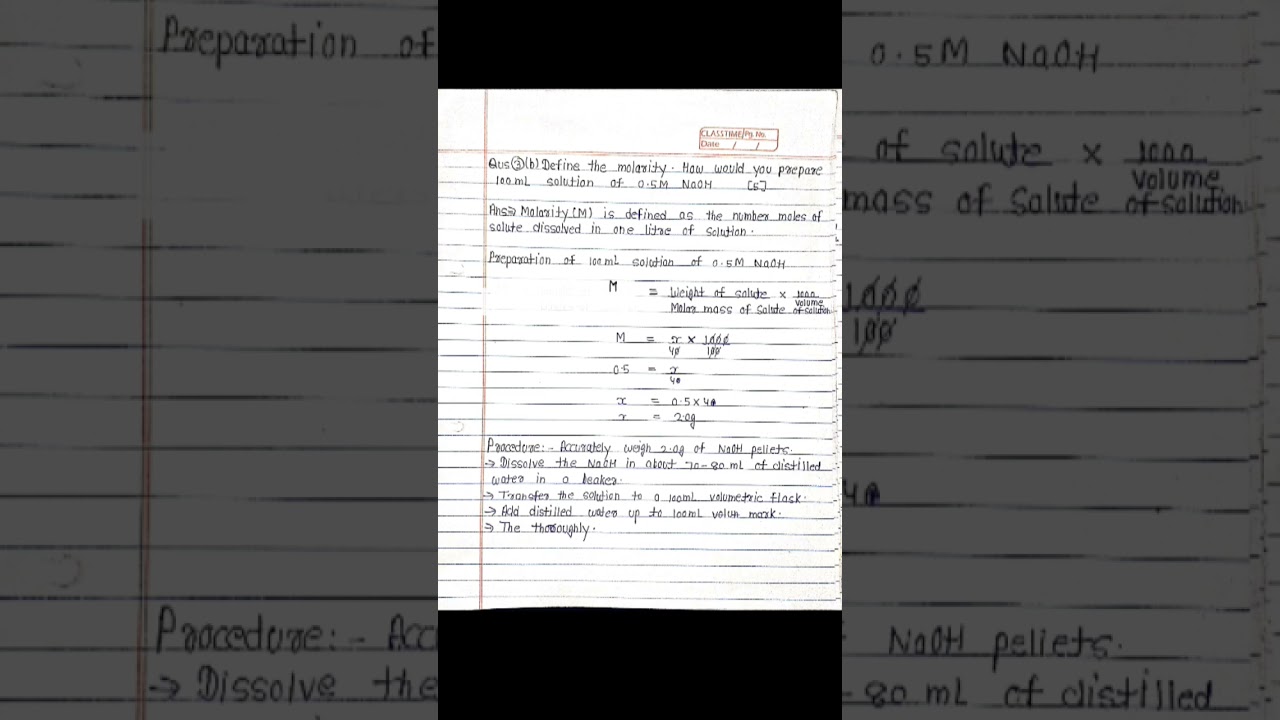 Preparation of
0.5M NaOH
of solute × 1000
volume
mass of Solute of solution
1000
100
40
Procedure:- Acc
NaOH pellets.
→ Dissolve the
-80 mL of distilled
CLASSTIME Pg. No.
Date / /
Qus ③(b) Define the molarity. How would you prepare
100mL solution of 0.5M NaOH [5]
Ans⇒ Molarity(M) is defined as the number moles of
solute dissolved in one litre of solution.
Preparation of 100mL solution of 0.5M NaOH
M = Weight of solute × 1000
Molar mass of Solute volume of solution
M = x × 1000
40 100
0.5 = x
40
x = 0.5 × 40
x = 2.0g
Procedure:- Accurately weigh 2.0g of NaOH pellets.
→ Dissolve the NaOH in about 70-80 mL of distilled
water in a beaker.
→ Transfer the solution to a 100mL volumetric flask.
→ Add distilled water up to 100mL volum mark.
→ The thoroughly.